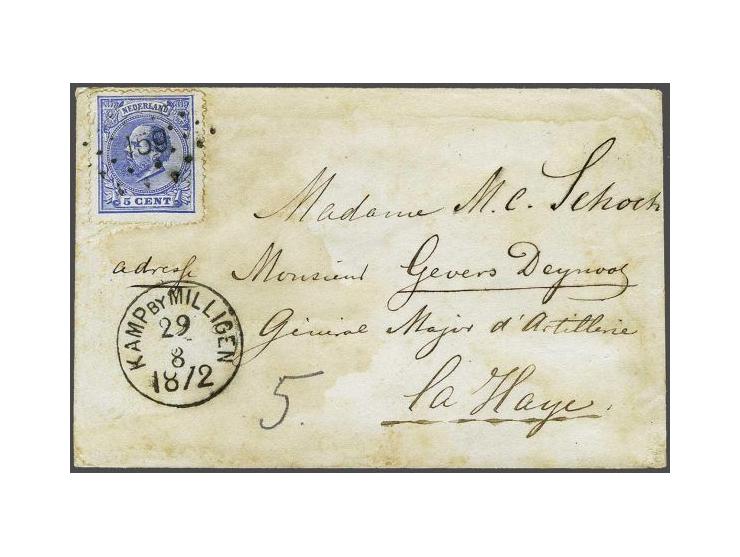 NEDERLAND
159
5 CENT
Madame M. C. Schoch
adresse Monsieur Gevers Deynoot
Général Major d'Artillerie
La Haye.
KAMP BY MILLIGEN
29
8
1872
5.